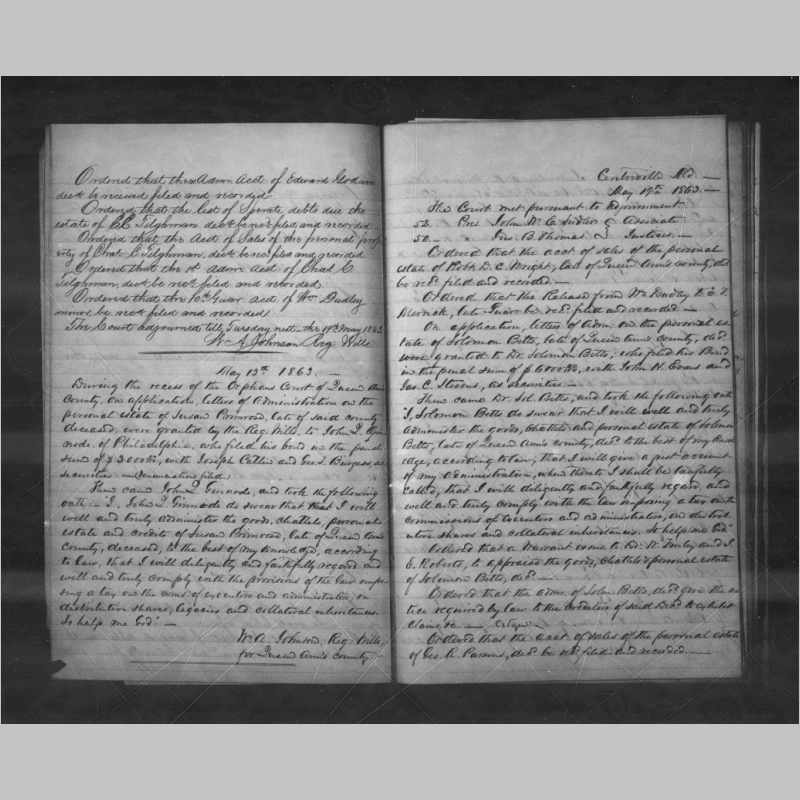 Ordered that the Admn Acct. of Edward
decd be received filed and recorded
Ordered that the list of Sperate debts due the
estate of C C Tilghman decd be recd filed and recorded
Ordered that the Acct of Sales of the personal prop
erty of Chas C Tilghman, decd be recd filed and recorded
Ordered that the 1st admn Acct of Chas C
Tilghman, decd be recd filed and recorded.
Ordered that the 10th Guar Acct of Wm Dudley
minor be recd filed and recorded
The Court adjourned till Tuesday next the 19th May 1863
Wm A Johnson Reg Wills
May 13th 1863. —
During the recess of the Orphans Court of Queen Anns
County, on application, letters of administration on the
personal estate of Susan Primrose, late of said county
deceased, were granted by the Reg. Wills. to John T.
of Philadelphia, who filed his bond in the penal
sum of $ 3000 00, with Joseph and Geo T Burgess, as
securities —
Then came John T and took the following
oath — "I, John T do swear that that I will
well and truly administer the goods, chattels, personal
estate and credits of Susan Primrose, late of Queen Anns
County, deceased, to the best of my knowledge, according
to law, that I will diligently and faithfully regard and
well and truly comply with the provisions of the law impo-
sing a tax on the coms. of executors and administrators, on
distributive shares, legacies and collateral inheritances.
So help me God" —
Wm A. Johnson, Reg. Wills,
for Queen Ann's County
Centreville Md —
May 19th 1863. —
The Court met pursuant to adjournment
52. Pres John W. C. & Associate
50. — " Jas B Thomas } Justices. —
Ordered that the acct of sales of the personal
estate of Robt D. C. Wright, late of Queen Ann's county, decd
be recd filed and recorded —
Ordered that the Release from Wm Dudley to E. T.
late Guar be recd filed and recorded —
On application, letters of Admn on the personal es-
tate of Solomon Betts, late of Queen Anns county, decd
were granted to Dr. Solomon Betts, who filed his Bond
in the penal sum of $ 6000 00, with John H. Evans and
Jas. C. Stevens, as securities —
Then came Dr. Sol. Betts, and took the following oath
"I, Solomon Betts do swear that I will well and truly
administer the goods, chattels and personal estate of Solomon
Betts, late of Queen Ann's county, decd to the best of my knowl
edge, according to law, that I will give a just account
of my administration, when thereto I shall be lawfully
called, that I will diligently and faithfully regard and
well and truly comply with the law imposing a tax on the
commissions of executors and administrators, on distrib
utive shares and collateral inheritances. So help me God"
Ordered that a Warrant issue to Dr. W. Finley and J.
E. Roberts, to appraise the goods, chattels & personal estate
of Solomon Betts, decd —
Ordered that the admr. of Solon Betts, decd give the no
tice required by law to the Creditors of said Decd to exhibit
claims &c —
Ordered that the acct of sales of the personal estate
of Geo. R. Parsons, decd be recd filed and recorded. —